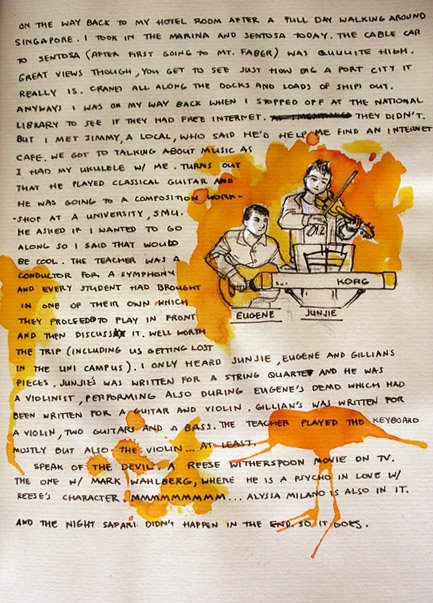 ON THE WAY BACK TO MY HOTEL ROOM AFTER A FULL DAY WALKING AROUND
SINGAPORE. I TOOK IN THE MARINA AND SENTOSA TODAY. THE CABLE CAR
TO SENTOSA (AFTER FIRST GOING TO MT. FABER) WAS QUUUITE HIGH.
GREAT VIEWS THOUGH, YOU GET TO SEE JUST HOW BIG A PORT CITY IT
REALLY IS. CRANES ALL ALONG THE DOCKS AND LOADS OF SHIPS OUT.
ANYWAYS I WAS ON MY WAY BACK WHEN I STOPPED OFF AT THE NATIONAL
LIBRARY TO SEE IF THEY HAD FREE INTERNET. THEY DIDN'T.
BUT I MET JIMMY, A LOCAL, WHO SAID HE'D HELP ME FIND AN INTERNET
CAFE. WE GOT TO TALKING ABOUT MUSIC AS
I HAD MY UKULELE W/ ME. TURNS OUT
THAT HE PLAYED CLASSICAL GUITAR AND
HE WAS GOING TO A COMPOSITION WORK-
-SHOP AT A UNIVERSITY, SMU.
HE ASKED IF I WANTED TO GO
ALONG SO I SAID THAT WOULD
BE COOL. THE TEACHER WAS A
CONDUCTOR FOR A SYMPHONY
AND EVERY STUDENT HAD BROUGHT
IN ONE OF THEIR OWN WHICH
THEY PROCEED TO PLAY IN FRONT
AND THEN DISCUSS IT. WELL WORTH
THE TRIP (INCLUDING US GETTING LOST
IN THE UNI CAMPUS). I ONLY HEARD JUNJIE, EUGENE AND GILLIANS
PIECES. JUNJIE'S WAS WRITTEN FOR A STRING QUARTET AND HE WAS
A VIOLINIST, PERFORMING ALSO DURING EUGENE'S DEMO WHICH HAD
BEEN WRITTEN FOR A GUITAR AND VIOLIN. GILLIAN'S WAS WRITTEN FOR
A VIOLIN, TWO GUITARS AND A BASS. THE TEACHER PLAYED THE KEYBOARD
MOSTLY BUT ALSO THE VIOLIN... AT LEAST.
SPEAK OF THE DEVIL. A REESE WITHERSPOON MOVIE ON TV.
THE ONE W/ MARK WAHLBERG, WHERE HE IS A PSYCHO IN LOVE W/
REESE'S CHARACTER. MMMMMMMMM... ALYSSA MILANO IS ALSO IN IT.
AND THE NIGHT SAFARI DIDN'T HAPPEN IN THE END. SO IT GOES.
KORG
EUGENE
JUNJIE